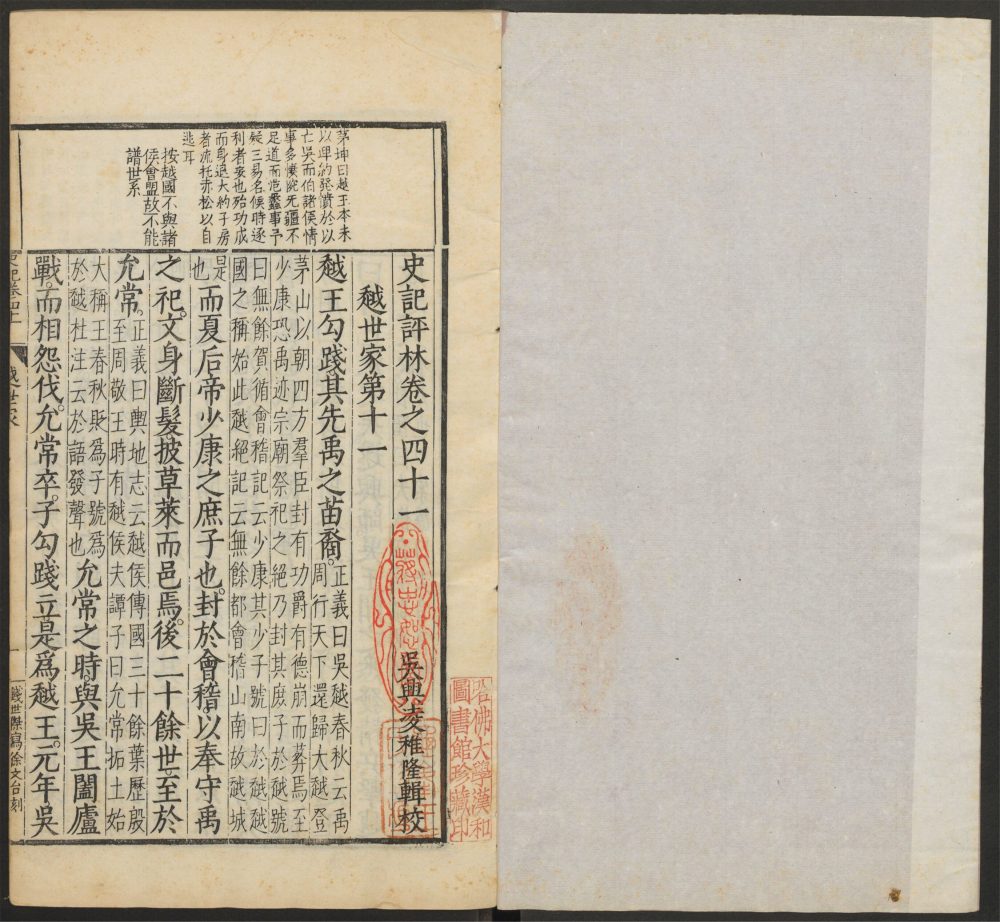 史記評林卷之四十一
吳興凌稚隆輯校
越世家第十一
越王勾踐其先禹之苗裔
正義曰吳越春秋云禹
周行天下還歸大越登
茅山以朝四方羣臣封有功爵有德崩而葬焉至
少康恐禹迹宗廟祭祀之絕乃封其庶子於越號
曰無餘賀循會稽記云少康其少子號曰於越越
國之稱始此越絕記云無餘都會稽山南故越城
是
也
而夏后帝少康之庶子也封於會稽以奉守禹
之祀文身斷髮披草萊而邑焉後二十餘世至於
允常
正義曰輿地志云越侯傳國三十餘葉歷殷
至周敬王時有越侯夫譚子曰允常拓土始
大稱王春秋貶爲子號爲
於越杜注云於語發聲也
允常之時與吳王闔廬
戰而相怨伐允常卒子勾踐立是爲越王元年吳
茅坤曰越王本末
以卑約發憤於以
亡吳而伯諸侯情
事多慷慨无疆不
足道而范蠡事予
疑三易名侯時逐
利者妄也殆功成
而身退大約子房
者流托赤松以自
逃耳
按越國不與諸
侯會盟故不能
譜世系
史記卷四十一
越世家
一
錢世傑寫徐文台刻
哈佛大學漢和
圖書館珍藏印